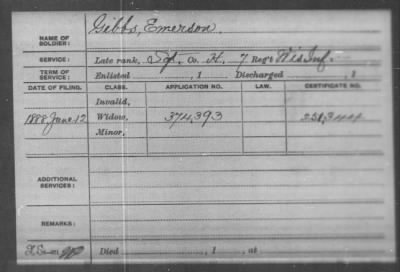 NAME OF SOLDIER: Gibbs, Emerson.
SERVICE: Late rank, Sgt. Co. H, 7 Reg't Wis Inf.
TERM OF SERVICE: Enlisted , 1 Discharged , 1
DATE OF FILING. CLASS. APPLICATION NO. LAW. CERTIFICATE NO.
Invalid,
1888, June 12 Widow, 374,393 251,344
Minor,
ADDITIONAL SERVICES:
REMARKS:
Died , 1 , at